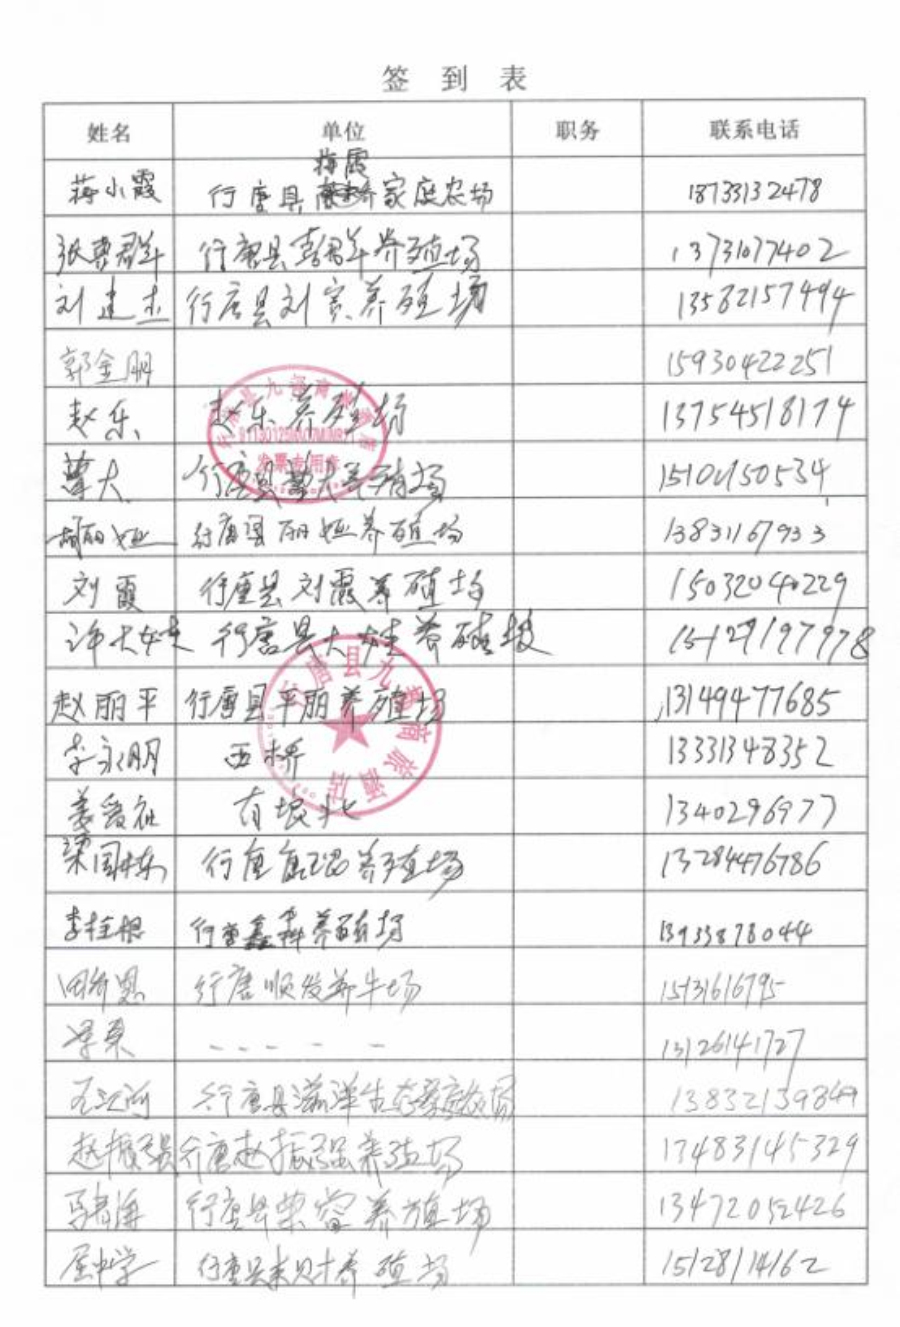 签 到 表
姓名 单位 职务 联系电话
蒋小霞 行唐县梅霞家庭农场 18733132478
张惠群 行唐县彭群养殖场 13731077402
刘建杰 行唐县刘宾养殖场 13582157494
郭金朋 15930422251
赵乐 赵乐养殖场 13754518174
大 行唐县养殖场 15101150534
丽娅 行唐县丽娅养殖场 13831167933
刘霞 行唐县刘霞养殖场 15032040229
许大 行唐县大养殖场 15129197978
赵丽平 行唐县平丽养殖场 13149477685
李永朋 西桥 13331348352
姜爱社 1340296977
梁国栋 行唐养殖场 13284476786
李柱根 行唐鑫犇养殖场 13933878044
田 行唐顺发养牛场 15131616795
- - - - - 13126141727
江河 行唐县滋洋生态家庭农场 13832139849
赵振强 行唐赵振强养殖场 17483145329
马海 行唐县荣富养殖场 13472052426
屈中学 行唐县来财养殖场 15128114162
发票专用章
行唐县九商旅酒店